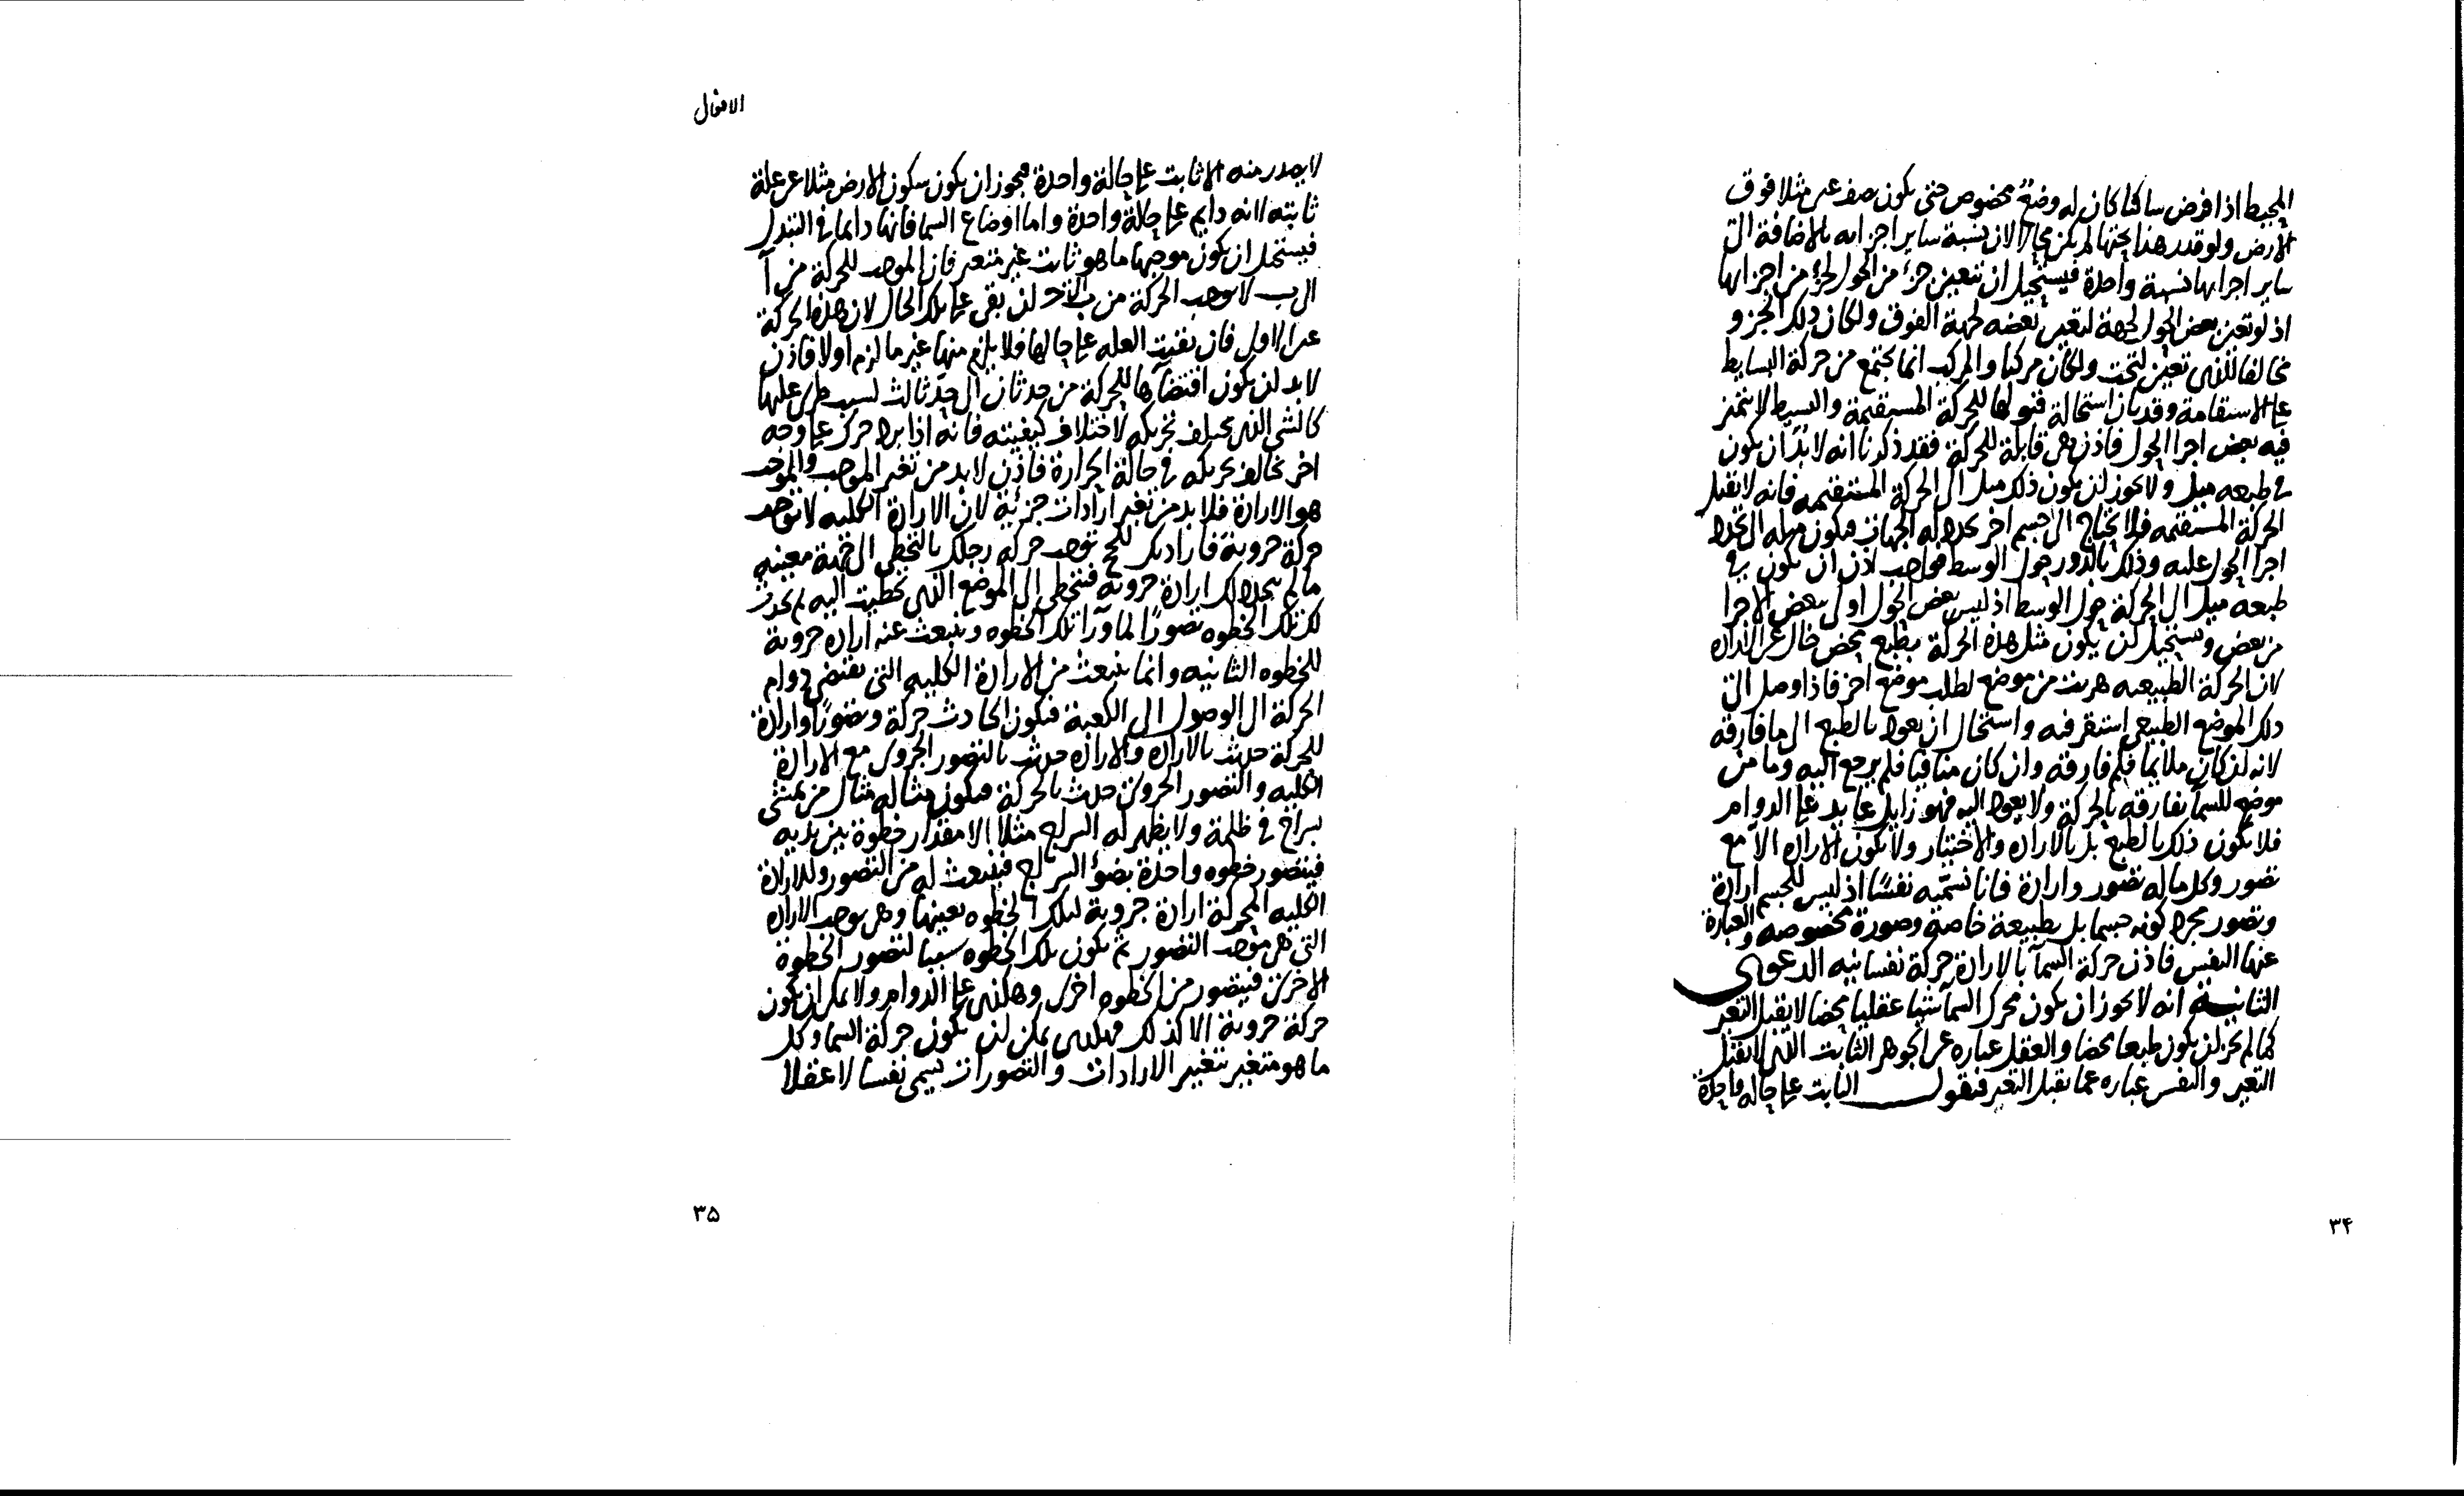 المحيط اذا فرض ساكنا كان له وضع مخصوص حتى يكون نصفه مثلا فوق
الارض ولو قدر هذا تحتها لم يكن محالا لان نسبة ساير اجزائه بالاضافة الى
ساير اجزائها نسبة واحدة فيستحيل ان يتعين جزء من الحول لجزء من اجزائها
اذ لو تعين بعض الحول لجهة لتعين بعضه لجهة الفوق ولكان ذلك الجزو
مخالفا للذى تعين لتحت ولكان مركبا والمركب انما يجتمع من حركة البسايط
على الاستقامة وقد بان استحالة قبولها للحركة المستقيمة والبسيط لا يتميز
فيه بعض اجزا الحول فاذن هى قابلة للحركة فقد ذكرنا انه لا بد ان يكون
فى طبعه ميل ولا يجوز ان يكون ذلك ميلا الى الحركة المستقيمه فانه لا يقبل
الحركة المستقيمه فلا يحتاج الى جسم اخر يحدد له الجهات فيكون ميله الى تبدل
اجزا الحول عليه وذلك بالدور حول الوسط فواجب اذن ان يكون فى
طبعه ميل الى الحركة حول الوسط اذ ليس بعض الحول اولى ببعض الاجزا
من بعض ويستحيل ان يكون مثل هذه الحركة بطبع محض خال عن الاراده
لان الحركة الطبيعيه هرب من موضع لطلب موضع اخر فاذا وصل الى
ذلك الموضع الطبيعى استقر فيه واستحال ان يعود بالطبع الى ما فارقه
لانه ان كان ملايما فلم فارقه وان كان منافيا فلم يرجع اليه وما من
موضع للسما يفارقه بالحركة ولا يعود اليه فهو زايل عايد على الدوام
فلا يكون ذلك بالطبع بل بالاراده والاختيار ولا يكون الاراده الا مع
تصور وكل ما له تصور وارادة فانا نسميه نفسا اذ ليس للجسم ارادة
وتصور بمجرد كونه جسما بل بطبيعة خاصة وصورة مخصوصه والعبارة
عنها النفس فاذن حركة السمآ بالارادة حركة نفسانيه الدعوى
الثانية انه لا يجوز ان يكون محرك السمآ شيا عقليا محضا لا يقبل التغير
كما لم يجز ان يكون طبعا محضا والعقل عباره عن الجوهر الثابت الذى لا يقبل
التغير والنفس عباره عما يقبل التغير فنقول الثابت على حاله واحدة
٣۴
لا يصدر منه الا ثابت على حالة واحدة فيجوز ان يكون سكون الارض مثلا عن علة
ثابته لانه دايم على حالة واحدة واما اوضاع السما فانها دايما فى التبدل
فيستحيل ان يكون موجبها ما هو ثابت غير متغير فان الموجب للحركة من آ
الى ب لا يوجب الحركة من ب الى ج ان بقى على تلك الحال لان هذه الحركة
غير الاولى فان بقيت العله على حالها فلا يلزم منها غير ما لزم اولا فاذن
لا بد ان يكون اقتضآها للحركة من حد ثان الى حد ثالث لسبب طرى عليها
كالشى الذى يختلف تحريكه لاختلاف كيفيته فانه اذا برد حرك على وجه
اخر يخالف تحريكه فى حالة الحرارة فاذن لا بد من تغير الموجب والموجب
هو الارادة فلا بد من تغير ارادات جزئية لان الارادة الكليه لا توجب
حركة جزوية فارادتك للحج لا توجب حركة رجلك بالتخطى الى جهة معينه
ما لم يتجدد لك ارادة جزوية فتتخطى الى الموضع الذى تخطيت اليه ثم يحدث
لك بتلك الخطوه تصورًا لما ورآ تلك الخطوه وينبعث عنه اراده جزوية
للخطوه الثانيه وانما ينبعث من الارادة الكليه التى تقتضى دوام
الحركة الى الوصول الى الكعبة فيكون الحادث حركة وتصورًا وارادة
للحركة حدثت بالاراده والاراده حدثت بالتصور الجزوى مع الارادة
الكليه والتصور الجزوى حدث بالحركة فيكون مثاله مثال من يمشى
بسراج فى ظلمة ولا يظهر له السراج مثلا الا مقدار خطوة بين يديه
فيتصور خطوه واحدة بضوء السراج فينبعث له من التصور وللارادة
الكليه المحركة ارادة جزوية لتلك الخطوه بعينها وهى توجب الاراده
التى هى موجب التصور ثم يكون تلك الخطوه سببا لتصور الخطوة
الاخرى فيتصور من الخطوه اخرى وهكذى على الدوام ولا يمكن ان يكون
حركة جزوية الا كذلك فهكذى يمكن ان يكون حركة السما وكل
ما هو متغير بتغير الارادات والتصورات يسمى نفسا لا عقلا
٣۵